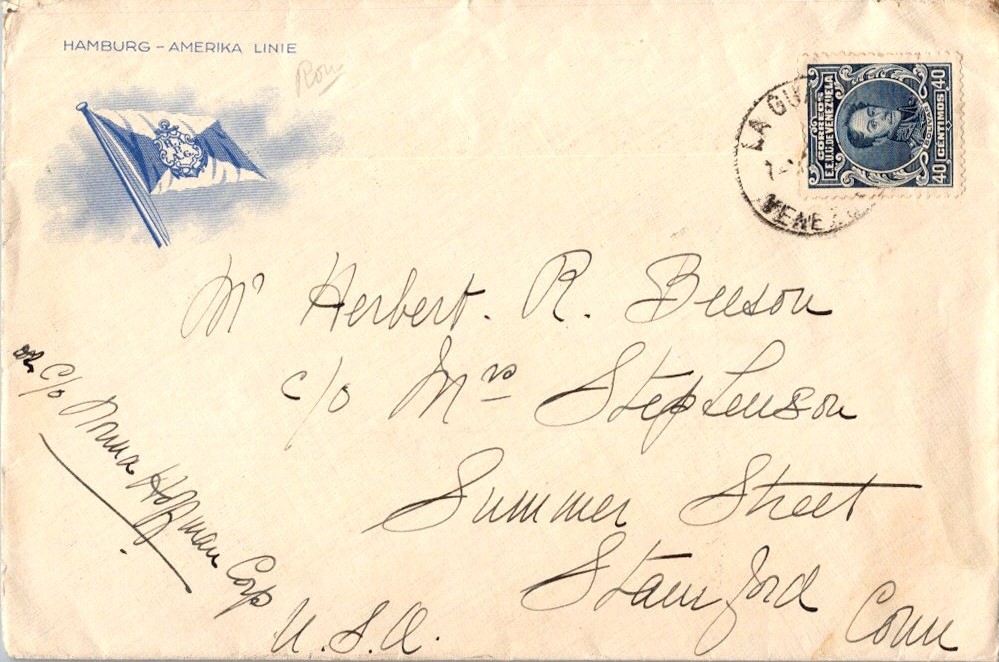 HAMBURG – AMERIKA LINIE
H. A. P. G.
LA GUA
VENEZ
CORREOS
E.E.U.U. DE VENEZUELA
40 CENTIMOS 40
Mr Herbert. R. Beeson
c/o Mrs Stephenson
Summer Street
Stamford Conn
U.S.A.
or c/o Hoffman Corp